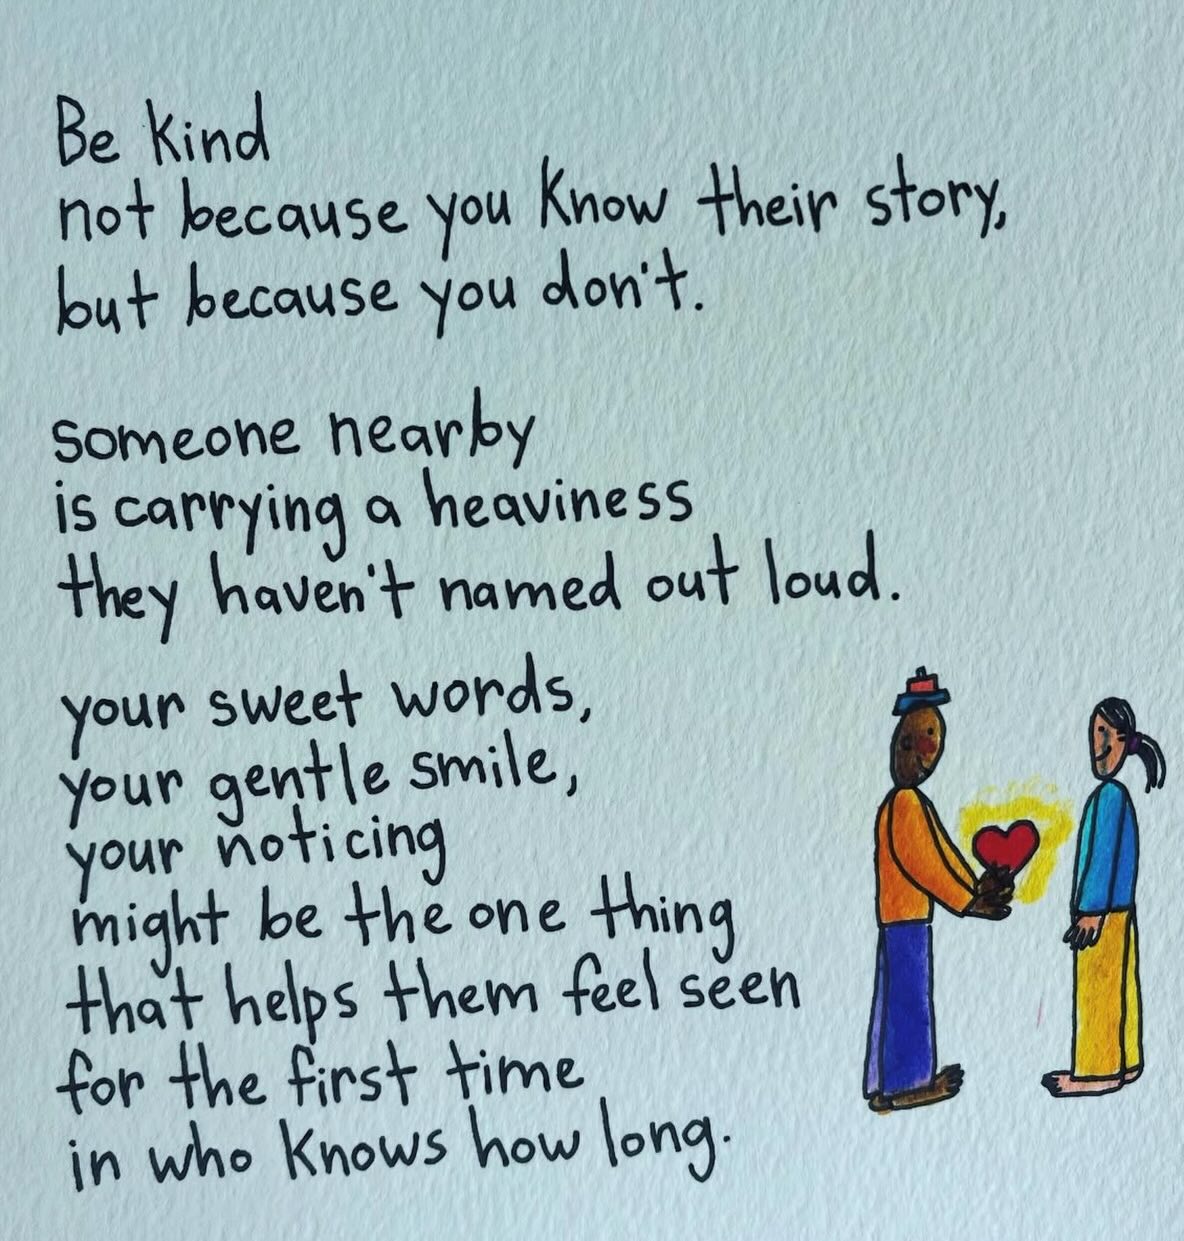 Be kind
not because you know their story,
but because you don't.
someone nearby
is carrying a heaviness
they haven't named out loud.
your sweet words,
your gentle smile,
your noticing
might be the one thing
that helps them feel seen
for the first time
in who knows how long.